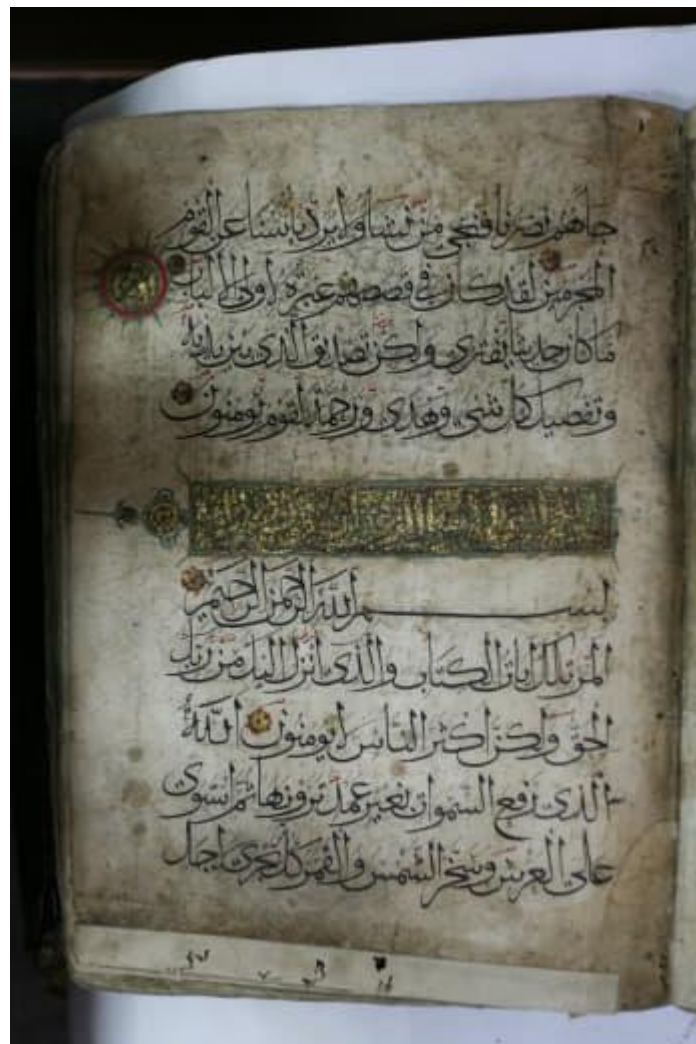 جاهم نصرنا فنجى من نشا ولا يرد باسنا عن القوم
المجرمين لقد كان في قصصهم عبرة لاولى الالباب
ما كان حديثا يفترى ولكن تصديق الذى بين يديه
وتفصيل كل شىء وهدى ورحمة لقوم يومنون
بسم الله الرحمن الرحيم
المر تلك ايات الكتاب والذى انزل اليك من ربك
الحق ولكن اكثر الناس لا يومنون الله
الذى رفع السموات بغير عمد ترونها ثم استوى
على العرش وسخر الشمس والقمر كل يجرى لاجل